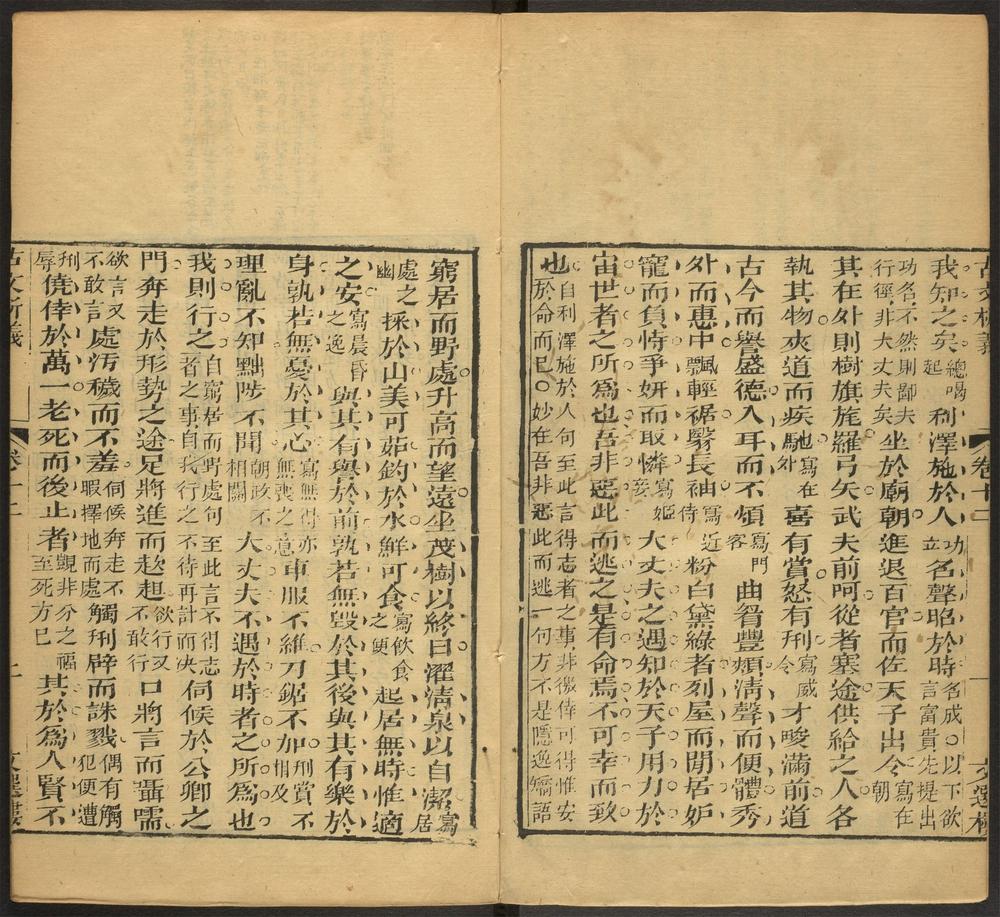 古文析義 卷十二 一 文選樓
我知之矣總喝起利澤施於人功立名聲昭於時名成○以下欲言富貴先提出
功名不然則鄙夫行徑非大丈夫矣坐於廟朝進退百官而佐天子出令寫在朝
其在外則樹旗旄羅弓矢武夫前呵從者塞途供給之人各
執其物夾道而疾馳寫在外喜有賞怒有刑寫威令才畯滿前道
古今而譽盛德入耳而不煩寫門客曲眉豐頰清聲而便體秀
外而惠中飄輕裾翳長袖寫近侍粉白黛綠者列屋而閒居妒
寵而負恃爭妍而取憐寫姬妾大丈夫之遇知於天子用力於
當世者之所為也吾非惡此而逃之是有命焉不可幸而致
也自利澤施於人句至此言得志者之事非徼倖可得惟安於命而已○妙在吾非惡此而逃一句方不是隱逸矯語
窮居而野處升高而望遠坐茂樹以終日濯清泉以自潔寫居
處之幽採於山美可茹釣於水鮮可食寫飲食之便起居無時惟適
之安寫晨昏之逸與其有譽於前孰若無毀於其後與其有樂於
身孰若無憂於其心寫無得亦無喪之意車服不維刀鋸不加刑賞不相及
理亂不知黜陟不聞朝政不相關大丈夫不遇於時者之所為也
我則行之自窮居而野處句至此言不得志者之事自我行之不待再計而決伺候於公卿之
門奔走於形勢之途足將進而趑趄欲行又不敢行口將言而囁嚅
欲言又不敢言處汚穢而不羞伺候奔走不暇擇地而處觸刑辟而誅戮偶有觸犯便遭
刑辱僥倖於萬一老死而後止者覬非分之福至死方已其於為人賢不
古文析義 卷十二 二 文選樓